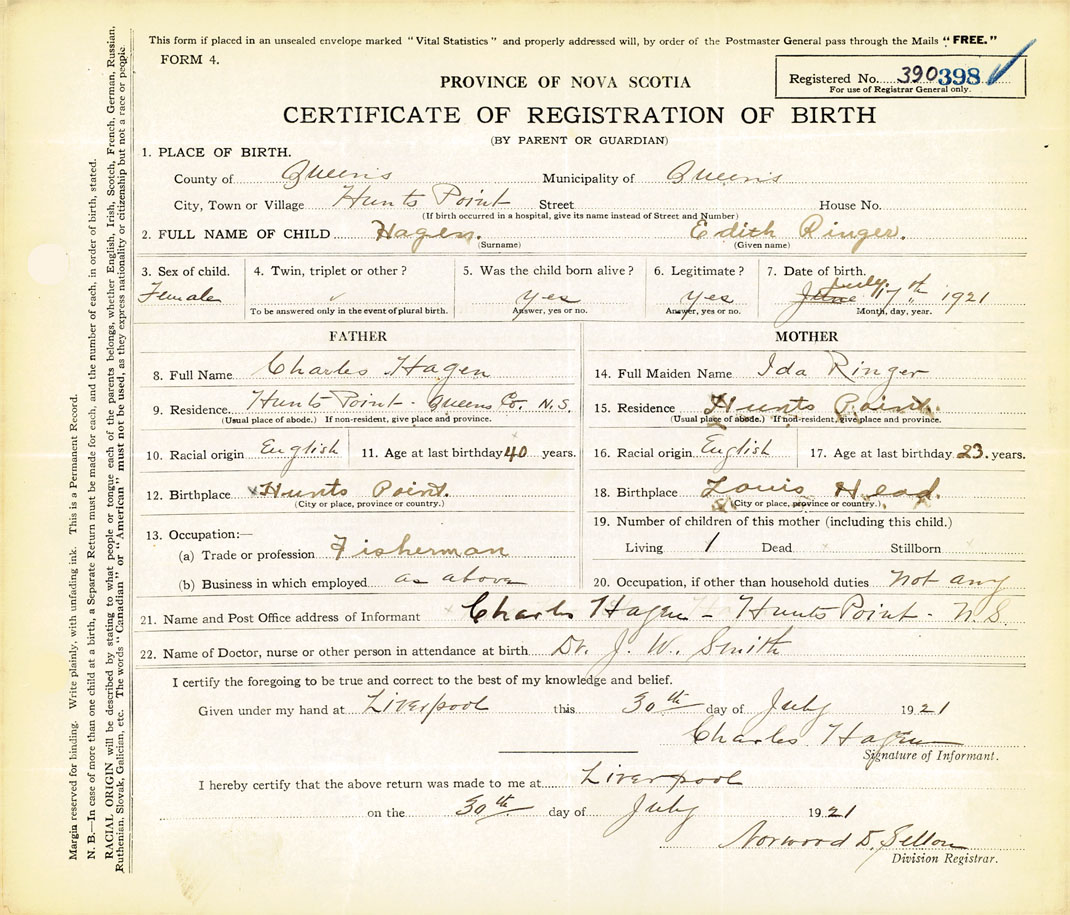 This form if placed in an unsealed envelope marked "Vital Statistics" and properly addressed will, by order of the Postmaster General pass through the Mails "FREE."
FORM 4.
Registered No. 390 398
For use of Registrar General only.
PROVINCE OF NOVA SCOTIA
CERTIFICATE OF REGISTRATION OF BIRTH
(BY PARENT OR GUARDIAN)
1. PLACE OF BIRTH.
County of Queens Municipality of Queens
City, Town or Village Hunts Point Street House No.
(If birth occurred in a hospital, give its name instead of Street and Number)
2. FULL NAME OF CHILD Hagen. Edith Ringer.
(Surname) (Given name)
3. Sex of child. 4. Twin, triplet or other? 5. Was the child born alive? 6. Legitimate? 7. Date of birth.
Female yes yes June July 17th 1921
To be answered only in the event of plural birth. Answer, yes or no. Answer, yes or no. Month, day, year.
FATHER
8. Full Name Charles Hagen
9. Residence Hunts Point - Queens Co. N.S.
(Usual place of abode.) If non-resident, give place and province.
10. Racial origin English 11. Age at last birthday 40 years.
12. Birthplace Hunts Point.
(City or place, province or country.)
13. Occupation:—
(a) Trade or profession Fisherman
(b) Business in which employed as above
MOTHER
14. Full Maiden Name Ida Ringer
15. Residence Hunts Point.
(Usual place of abode.) If non-resident, give place and province.
16. Racial origin English 17. Age at last birthday 23. years.
18. Birthplace Louis Head.
(City or place, province or country.)
19. Number of children of this mother (including this child.)
Living 1 Dead Stillborn
20. Occupation, if other than household duties not any
21. Name and Post Office address of Informant Charles Hagen - Hunts Point - N.S.
22. Name of Doctor, nurse or other person in attendance at birth Dr. J. W. Smith
I certify the foregoing to be true and correct to the best of my knowledge and belief.
Given under my hand at Liverpool this 30th day of July 1921
Charles Hagen
Signature of Informant.
I hereby certify that the above return was made to me at Liverpool
on the 30th day of July 1921
Norwood D. Sellon
Division Registrar.
Margin reserved for binding. Write plainly, with unfading ink. This is a Permanent Record.
N. B.—In case of more than one child at a birth, a Separate Return must be made for each, and the number of each, in order of birth, stated.
RACIAL ORIGIN will be described by stating to what people or tongue each of the parents belongs, whether English, Irish, Scotch, French, German, Russian,
Ruthenian, Slovak, Galician, etc. The words "Canadian" or "American" must not be used, as they express nationality or citizenship but not a race or people.